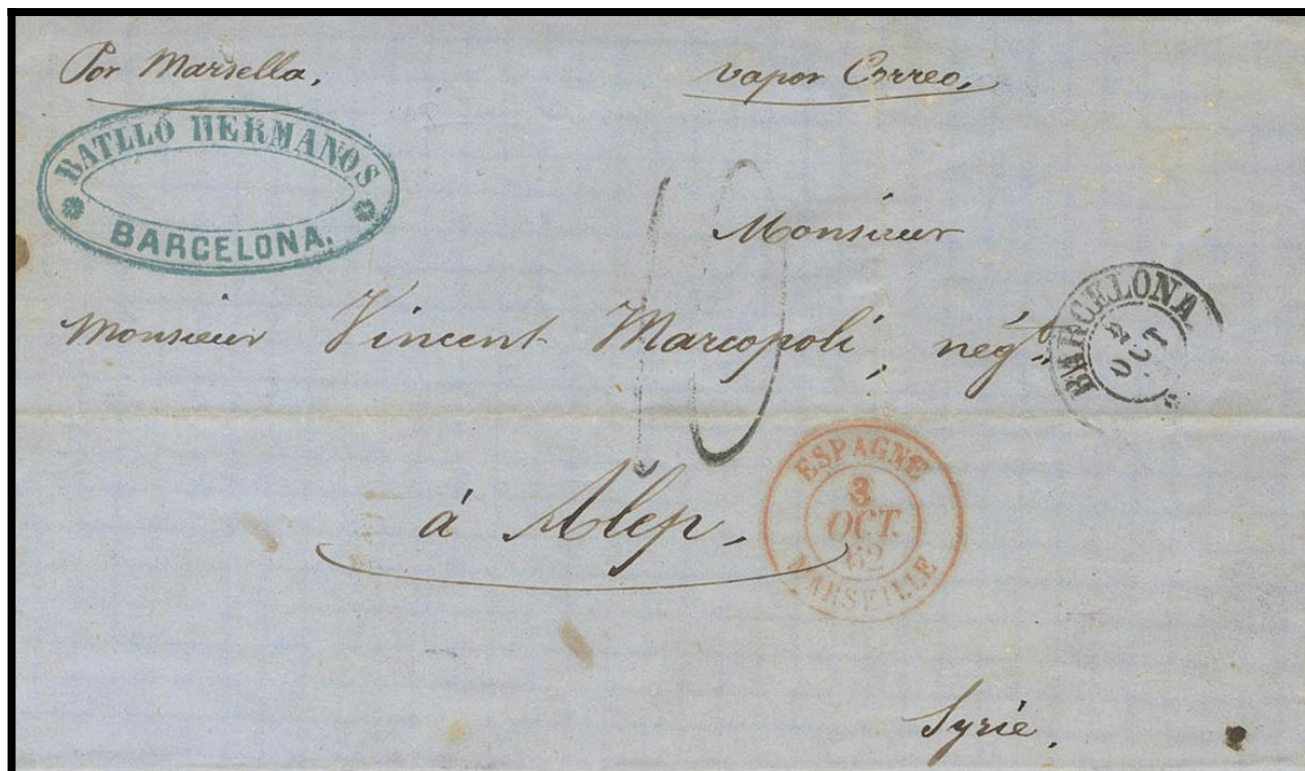 Por Marsella.
vapor Correo.
BATLLÓ HERMANOS
BARCELONA.
10
Monsieur
Monsieur Vincent Marcopoli, négt
BARCELONA
2
OCT
á Alep.
ESPAGNE
3
OCT.
62
MARSEILLE
Syrie.